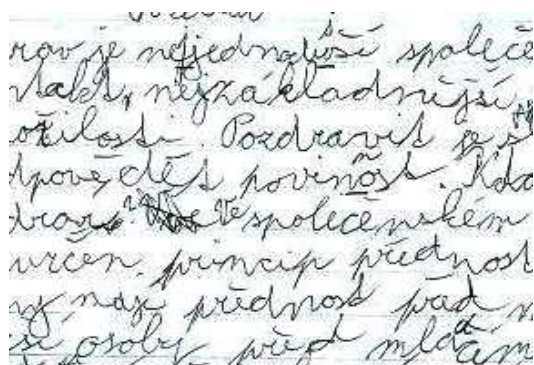 rav je nejjednodušší společe
ntakt, nejzákladnější
ožilosti. Pozdravit je
dpovědět povinnost. Kdo
zdraví? ve společenském
určen princip přednost
ny mají přednost před m
ší osoby před mladším